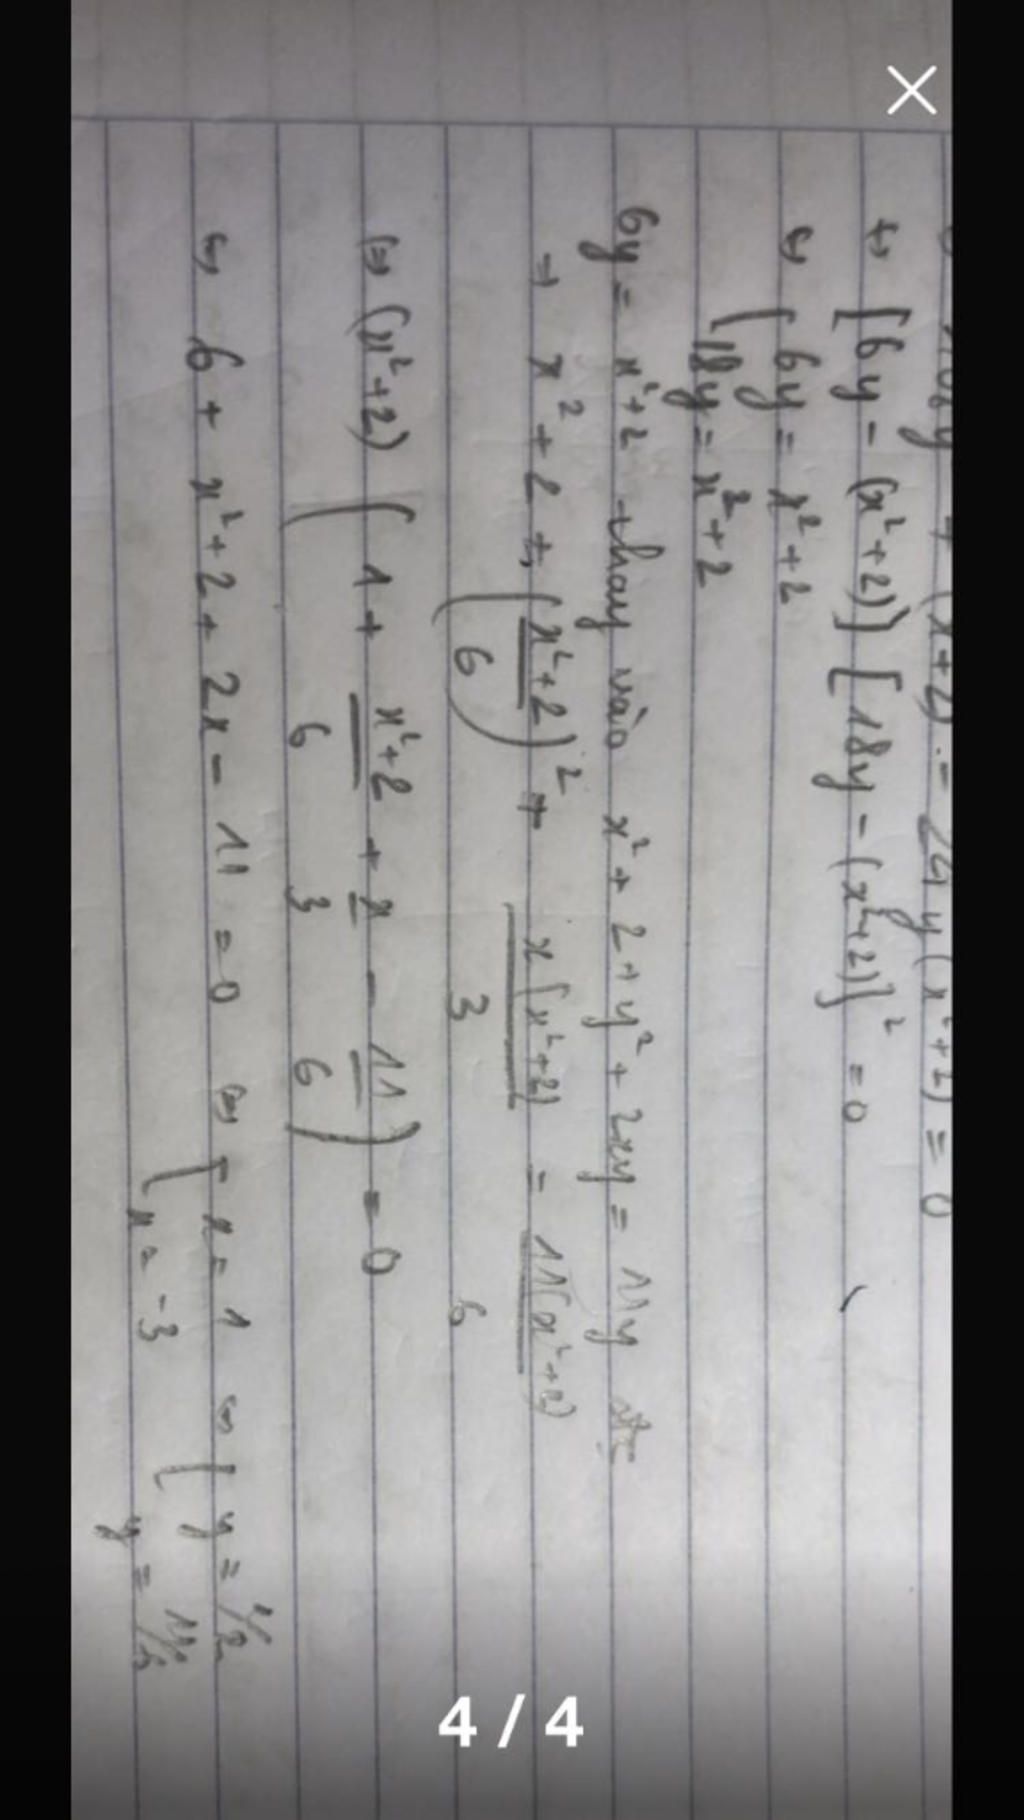 108y² + (x²+2)² - 24y(x²+2) = 0
↔ [6y - (x²+2)] [18y - (x²+2)]² = 0
↔ [ 6y = x²+2
18y = x²+2
6y = x²+2 thay vào x² + 2 + y² + 2xy = 11y
⇒ x² + 2 + (x²+2 / 6)² + x(x²+2) / 3 = 11(x²+2) / 6
⇔ (x²+2) ( 1 + x²+2 / 6 + x / 3 - 11 / 6 ) = 0
↔ 6 + x²+2 + 2x - 11 = 0 ⇔ [ x = 1 ↔ [ y = 1/2
x = -3 y = 11/6
4 / 4